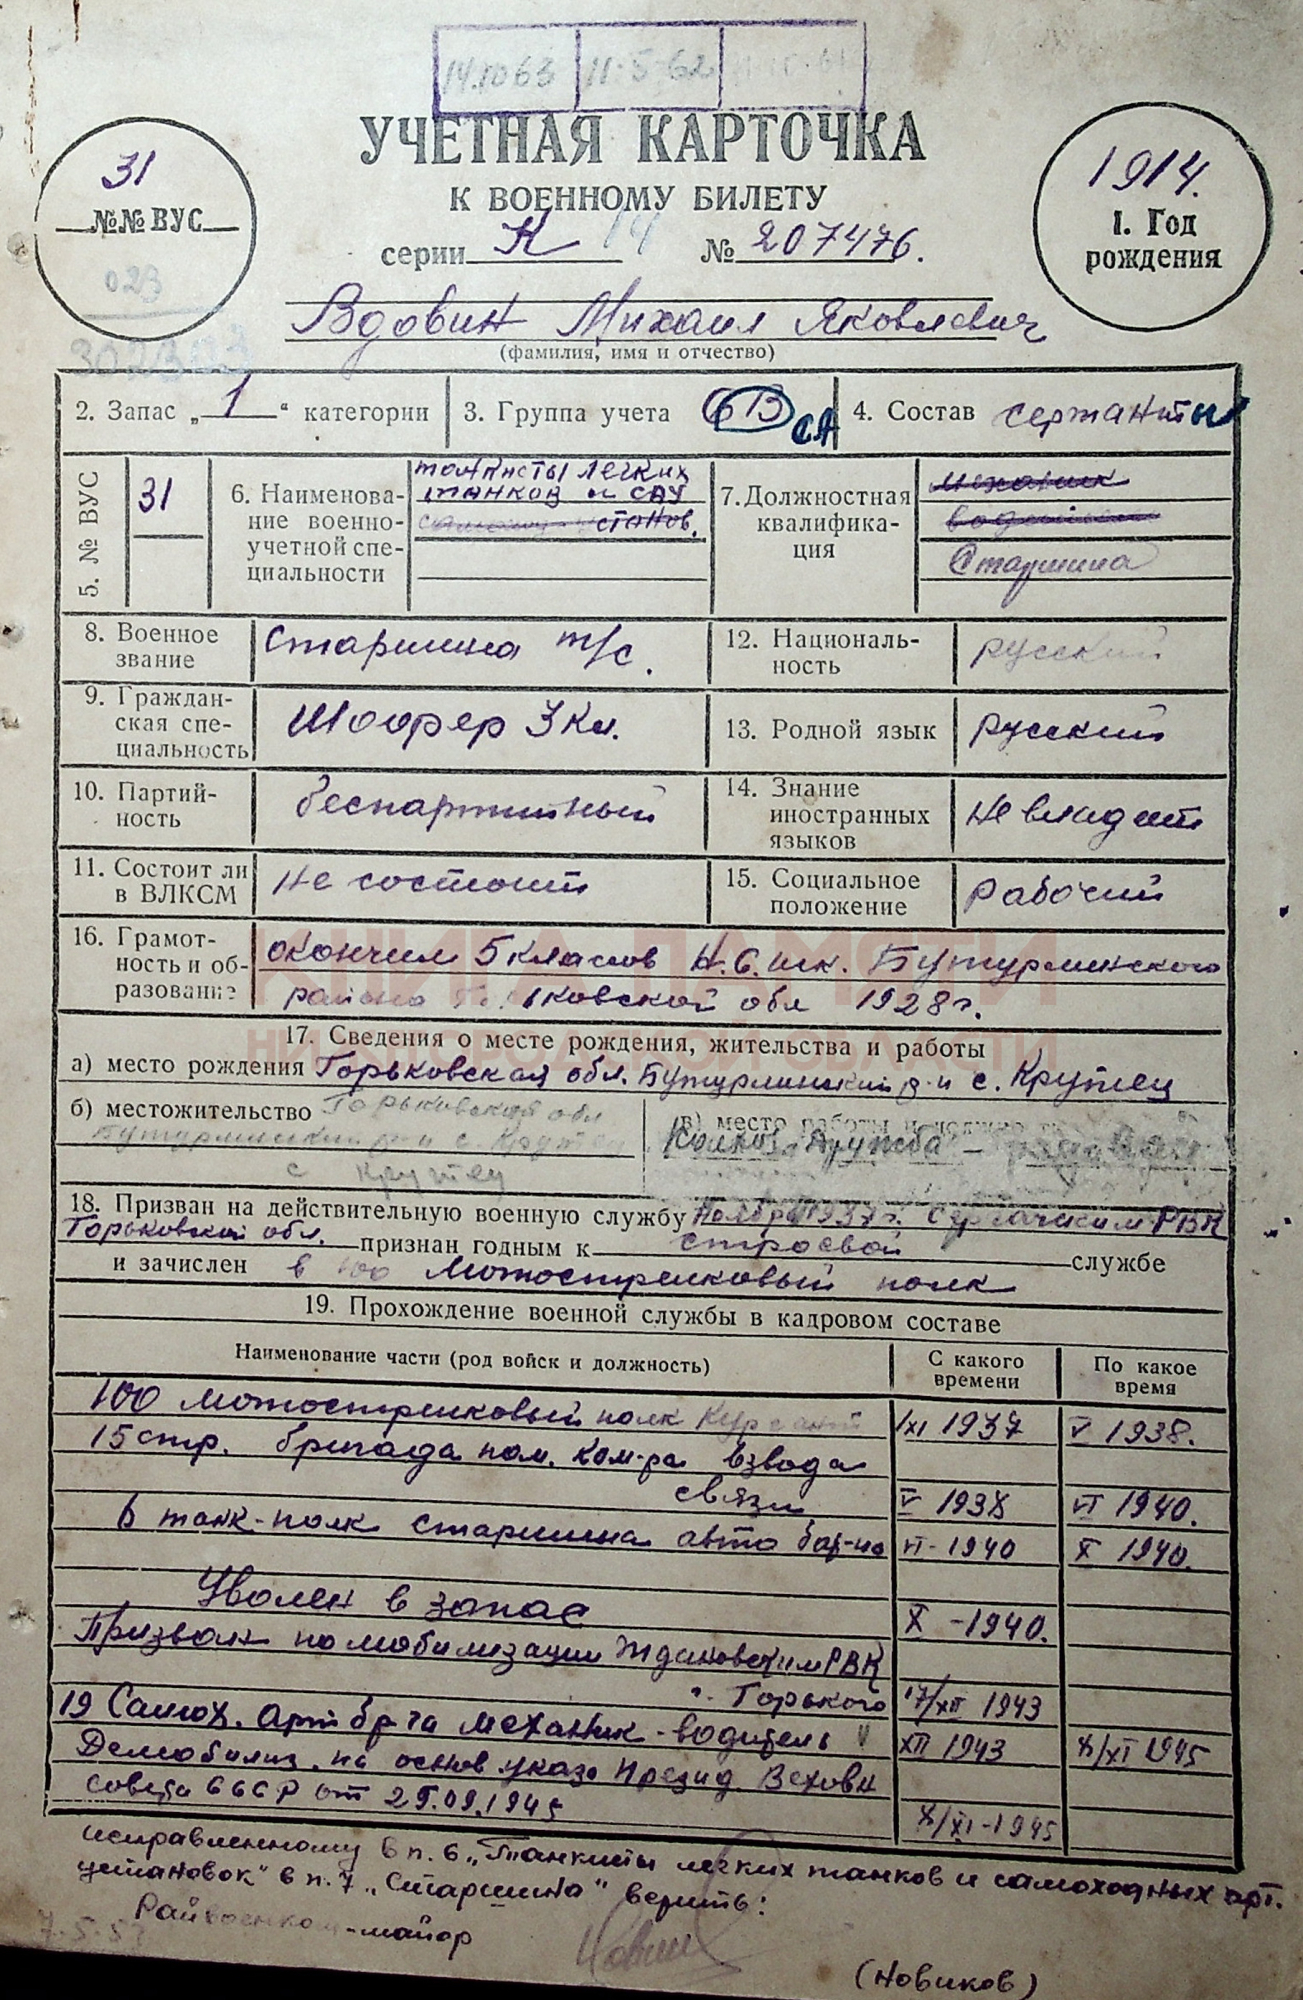 14.10 63 11·5·62
УЧЕТНАЯ КАРТОЧКА
К ВОЕННОМУ БИЛЕТУ
серии К 14 № 207476.
31
№№ ВУС
023
302303
1914.
1. Год
рождения
Вдовин Михаил Яковлевич
(фамилия, имя и отчество)
2. Запас „ 1 “ категории
3. Группа учета СА
4. Состав сержанты
5. № ВУС 31
6. Наименова-
ние военно-
учетной спе-
циальности
танкисты легких
танков и САУ
станов.
7. Должностная
квалифика-
ция
механик
водитель
Старшина
8. Военное
звание
Старшина т/с.
9. Граждан-
ская спе-
циальность
Шоофер 3 кл.
10. Партий-
ность
беспартийный
11. Состоит ли
в ВЛКСМ
Не состоит
12. Националь-
ность
русский
13. Родной язык русский
14. Знание
иностранных
языков
Не владеет
15. Социальное
положение
Рабочий
16. Грамот-
ность и об-
разование
окончил 5 классов Н.С.шк. Бутурлинского
района Горьковской обл 1928г.
КНИГА ПАМЯТИ
НИЖЕГОРОДСКОЙ ОБЛАСТИ
17. Сведения о месте рождения, жительства и работы
а) место рождения Горьковская обл. Бутурлинский р-н с. Крутец
б) местожительство Горьковская обл
Бутурлинский р-н с. Крутец
с Крутец
в) место работы и
Колхоз Дружба –
18. Призван на действительную военную службу Ноябрь 1937г. Сергачским РВК
Горьковской обл. признан годным к строевой службе
и зачислен в 100 Мотострелковый полк
19. Прохождение военной службы в кадровом составе
Наименование части (род войск и должность)
С какого
времени
По какое
время
100 мотострелковый полк Курсант XI 1937 V 1938.
15 стр. бригада пом. ком-ра взвода
связи V 1938 VI 1940.
6 танк-полк старшина авто бат-на VI-1940 X 1940.
Уволен в запас X -1940.
Призван по мобилизации Ждановским РВК
г. Горького 17/XII 1943
19 Самох. арт бр-га механик-водитель XII 1943 X/XI 1945
Демобилиз. на основ указа Презид. Верховн
совета СССР от 25.09.1945 X/XI-1945
исправленному в п. 6 „Танкисты легких танков и самоходных арт.
установок“ в п. 7 „Старшина“ верить:
Райвоенком-майор
7.5.5
(Новиков)